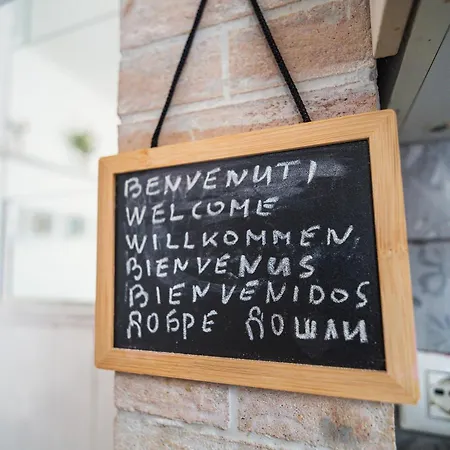 BENVENUTI
WELCOME
WILLKOMMEN
BIENVENUS
BIENVENIDOS
ДОБРЕ ДОШЛИ